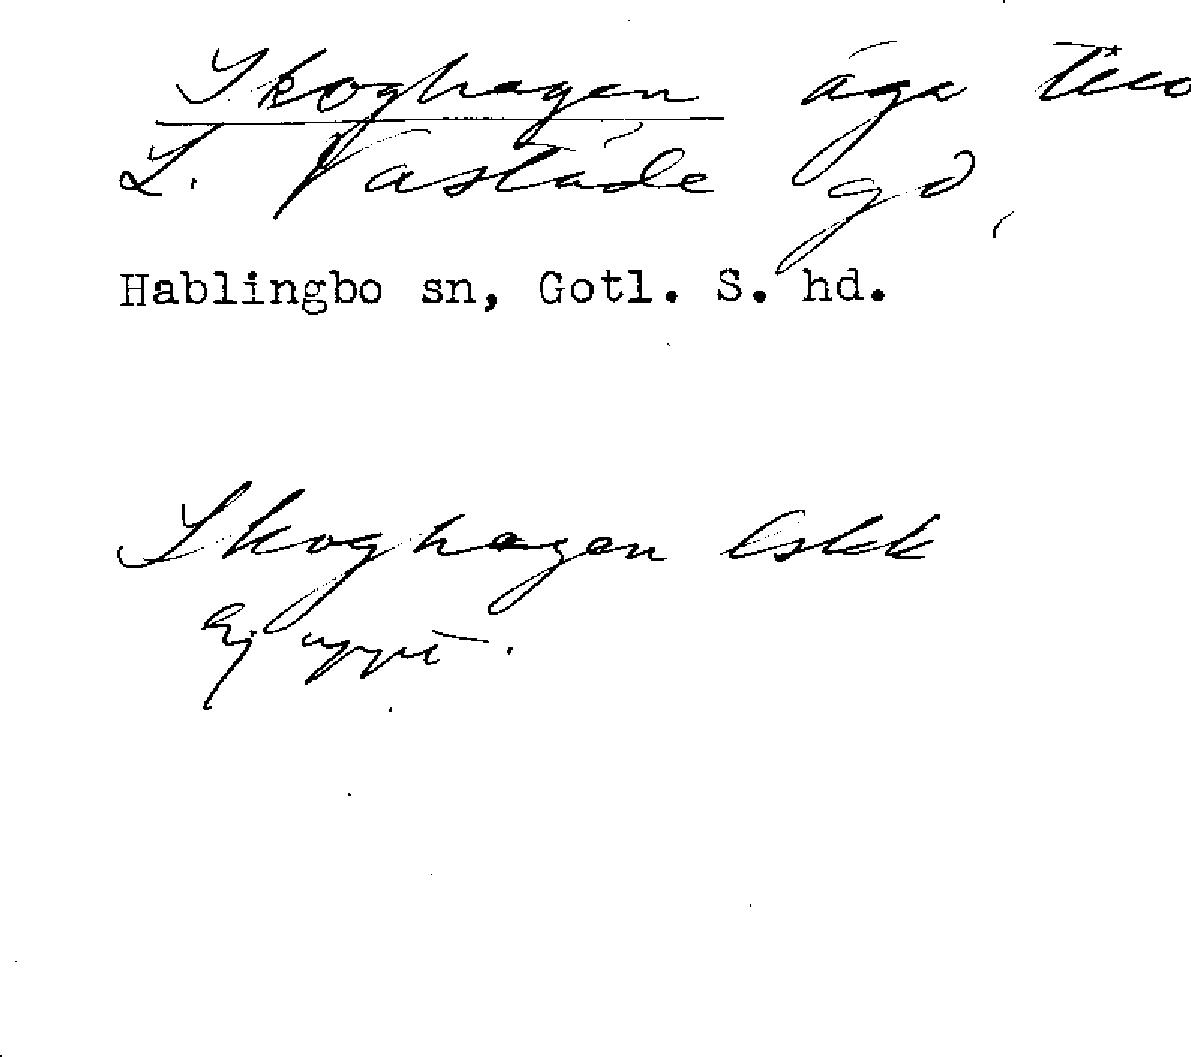 Skoghagen äga till
L. Vaståde gd,
Hablingbo sn, Gotl. S. hd.
Skoghagen Eskk
Ej uppt.